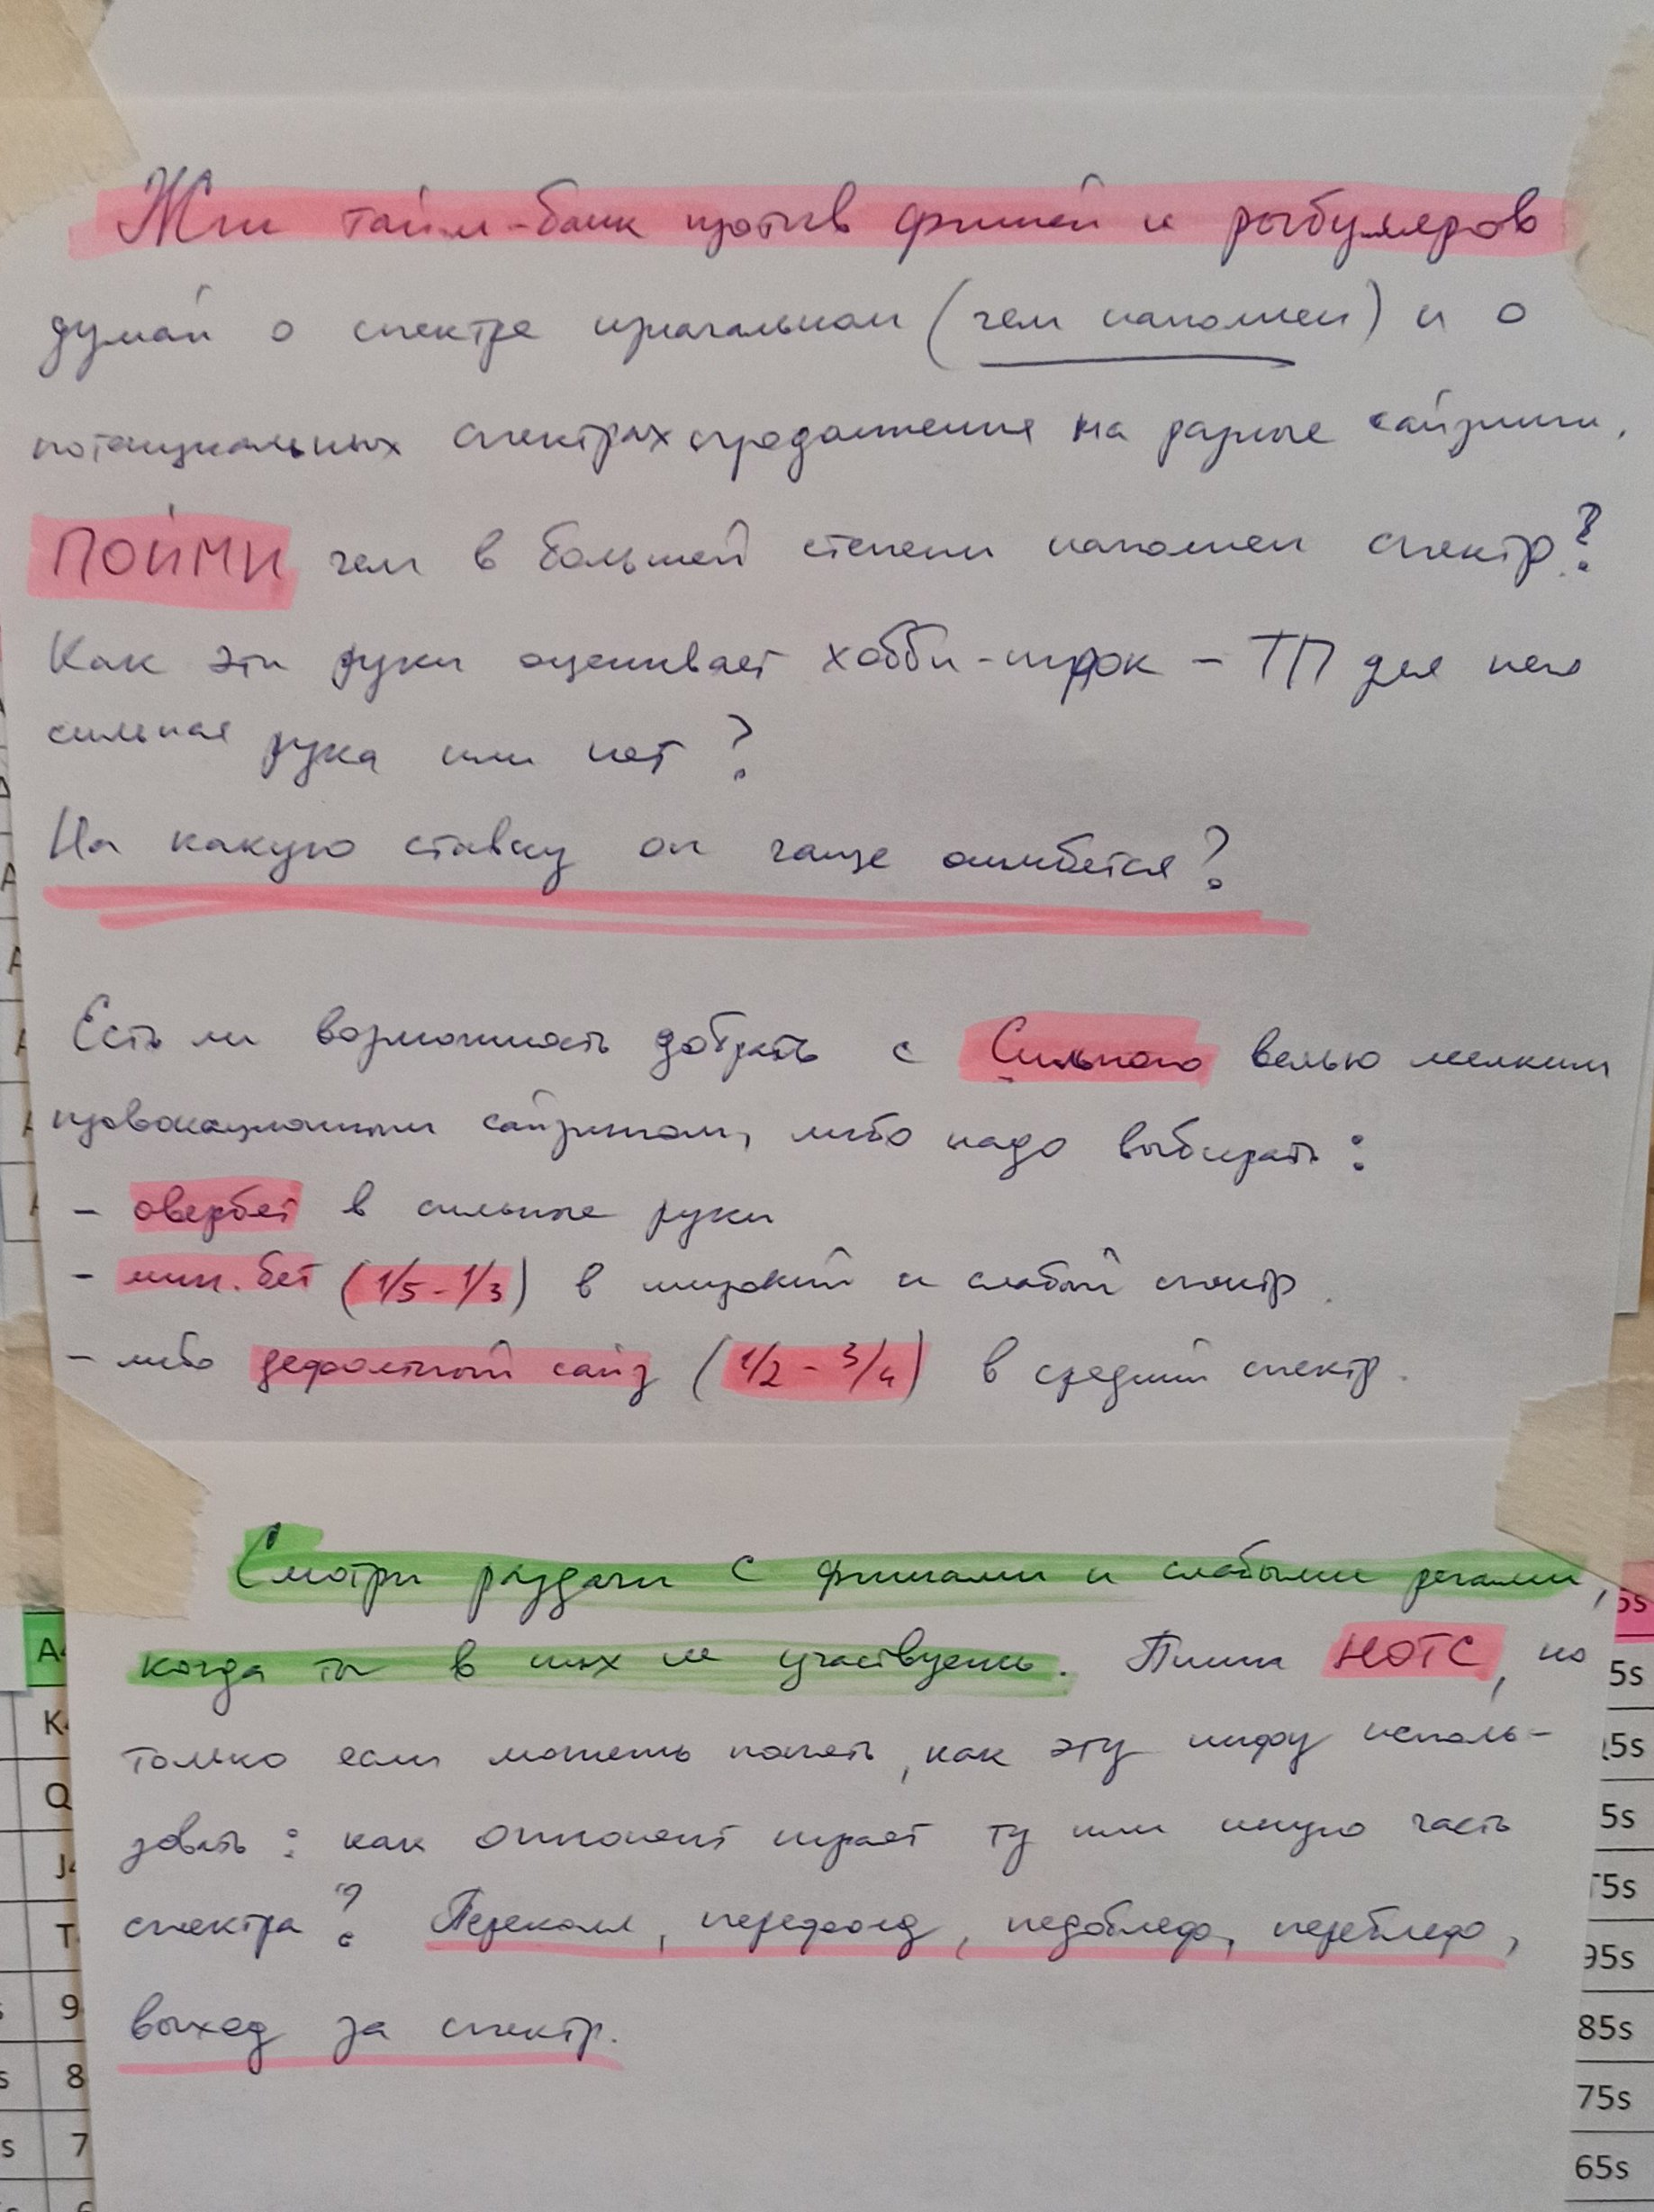 Жги тайм-банк против фишей и рыбуляров,
думай о спектре изначальном (чем наполнен) и о
потенциальных спектрах продолжения на разные сайзинги.
ПОЙМИ чем в большей степени наполнен спектр?
Как эти руки оценивает хобби-игрок – ТП для него
сильная рука или нет?
На какую ставку он чаще ошибется?
Есть ли возможность добрать с Сильного велью мелким
провокационным сайзингом, либо надо выбирать:
– овербет в сильные руки
– мин. бет (1/5 - 1/3) в широкий и слабый спектр.
– либо дефолтный сайз (1/2 - 3/4) в средний спектр.
Смотри раздачи с фишами и слабыми регами,
когда ты в них не участвуешь. Пиши НОТС, но
только если можешь понять, как эту инфу исполь-
зовать: как оппонент играет ту или иную часть
спектра? Переколл, перефолд, недоблеф, переблеф,
выход за спектр.
A
A
A
A
A
A
K
Q
J
T
9
8
s
7
s
5s
5s
5s
5s
95s
85s
75s
65s